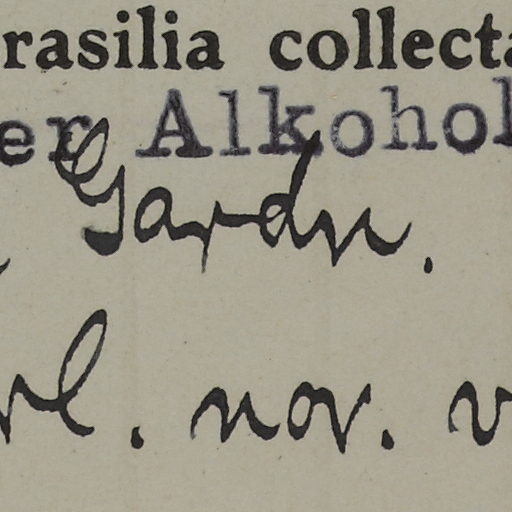 rasilia collecta
er Alkohol
Gardn.
rl. nov. v